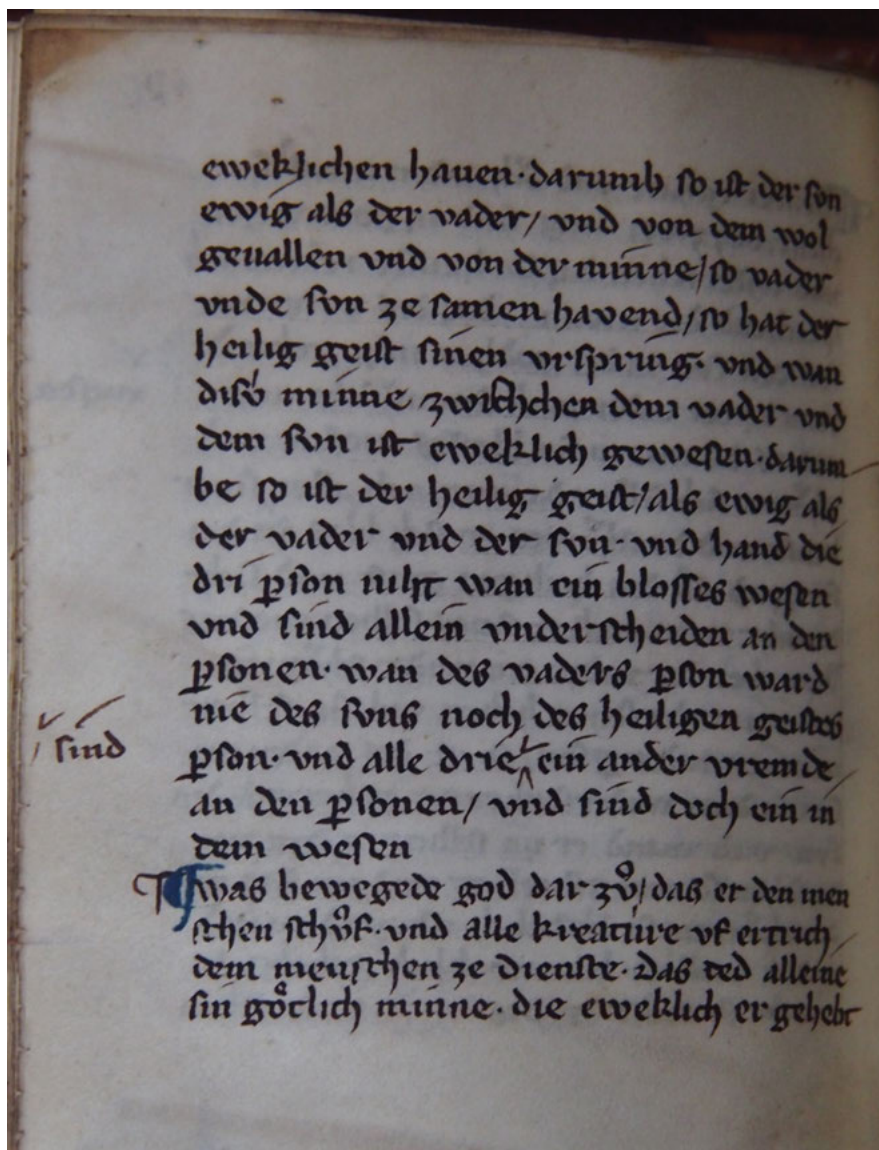 eweklichen hauen · darumb so ist der son
ewig als der vader / vnd von dem wol
geuallen vnd von der minne / so vader
vnde son ze samen havend / so hat der
heilig geist sinen vrspring · vnd wan
disv́ minne zwischchen dem vader vnd
dem son ist eweklich gewesen · darum
be so ist der heilig geist / als ewig als
der vader vnd der son · vnd hand die
dri ꝑson niht wan ein blosses wesen
vnd sind allein vnderscheiden an den
ꝑsonen · wan des vaders ꝑson ward
nie des sons noch des heiligen geistes
sind
ꝑson · vnd alle drie ein ander vremde
an den ꝑsonen / vnd sind doch ein in
dem wesen
¶ was bewegede god dar zvͦ / das er den men
schen schvͦf · vnd alle kreatúre vf ertrich
dem menschen ze dienste · Das ted alleine
sin goͤtlich minne · die eweklich er gehebt